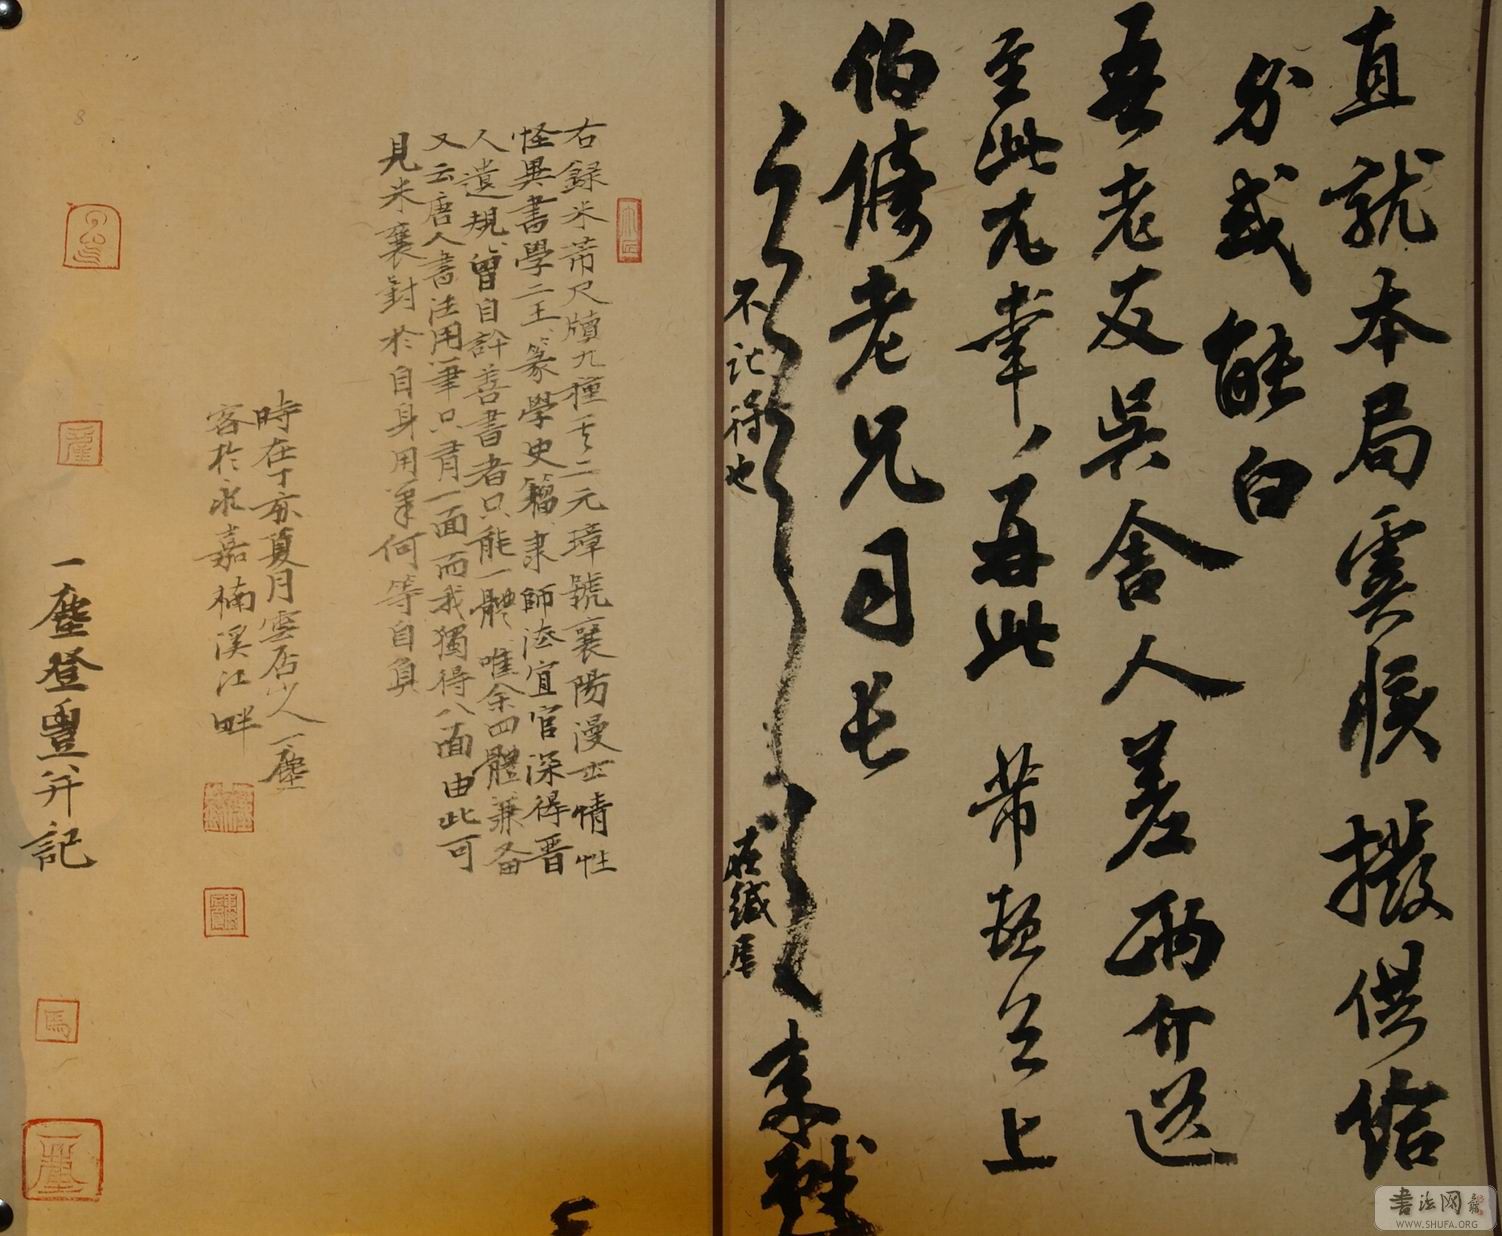 直就本局撥供給
分或能白
吾老友吳舍人差兩介送
至此尤幸再此 帶上
伯脩老兄司長
不記得也
在緘尾
右錄米芾尺牘九種元璋號襄陽漫士情性
怪異書學二王篆學史籀隸師法宜官深得晋
人遺規曾自許善書者只能一體唯余四體兼备
又云唐人書法用筆只有一面而我獨得八面由此可
見米襄對於自身用筆何等自負
時在丁亥夏月雲居山人一塵
客於永嘉楠溪江畔
一塵登豐并記
馬
一塵
書法网
WWW.SHUFA.ORG